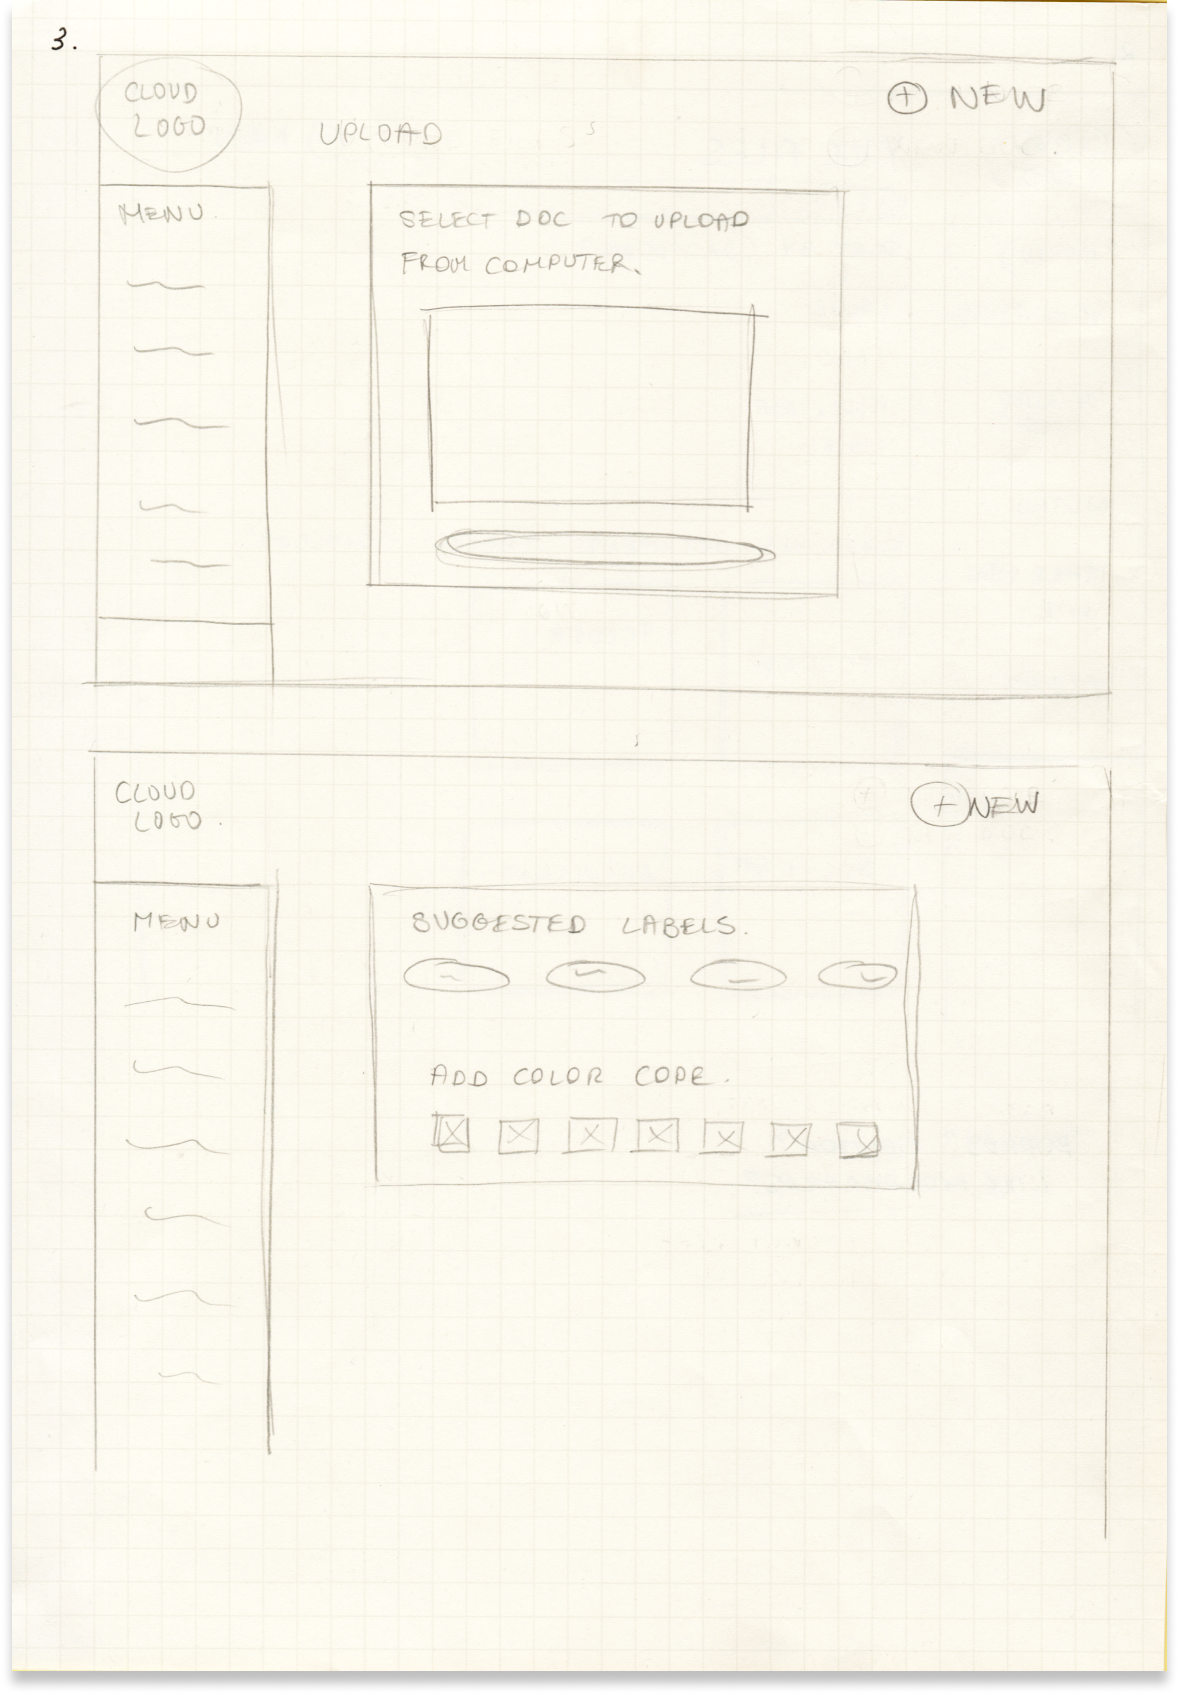 3.
CLOUD
LOGO
+ NEW
UPLOAD
MENU.
SELECT DOC TO UPLOAD
FROM COMPUTER.
CLOUD
LOGO.
+ NEW
MENU
SUGGESTED LABELS.
ADD COLOR CODE.